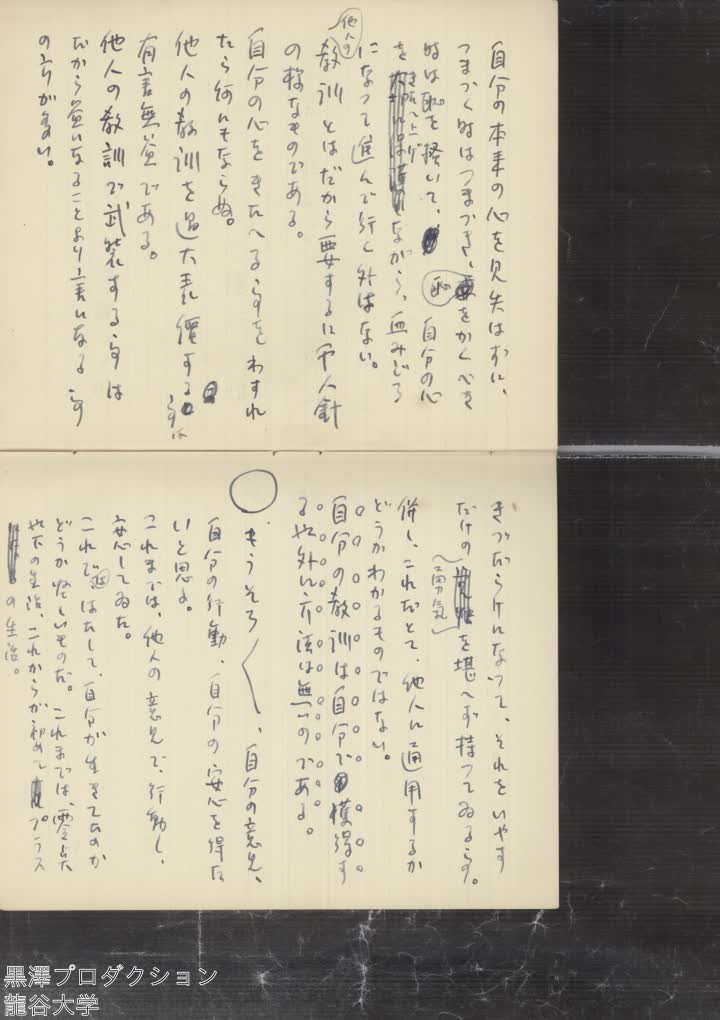 自分の本来の心を見失はずに、
つまづく時はつまづき、恥をかくべき
時は恥を掻いて、自分の心
を ながら、血みどろ
になって進んで行く外はない。
他人の
教訓とはだから要するに千人針
の様なものである。
自分の心をきたへる事をわすれ
たら何にもならぬ。
他人の教訓を過大評價する事は
有害無益である。
他人の教訓で武装する事は
だから益になることより害になる事
の方が多い。
きずだらけになって、それをいやす
だけの(勇気)を堪へず持ってゐる事。
併し、これだとて、他人に通用するか
どうかわかるものではない。
自分の教訓は自分で獲得す
る以外に方法は無いのである。
○
もうそろ〱、自分の意見、
自分の行動、自分の安心を得た
いと思ふ。
これまでは、他人の意見で、行動し、
安心してゐた。
これでは はたして、自分が生きてたのか
どうか怪しいものだ。これまでは、零点
以下の生活、これからが初めてプラス
の生活。
黒澤プロダクション
龍谷大学